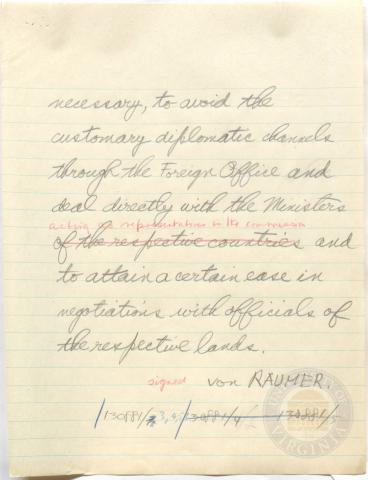 necessary, to avoid the
customary diplomatic channels
through the Foreign Office and
deal directly with the Ministers
acting as representatives to the commission
of the respective countries and
to attain a certain ease in
negotiations with officials of
the respective lands.
signed von RAUMER.
130881/3,4, 130881/4 130881/5
UNIVERSITY OF VIRGINIA